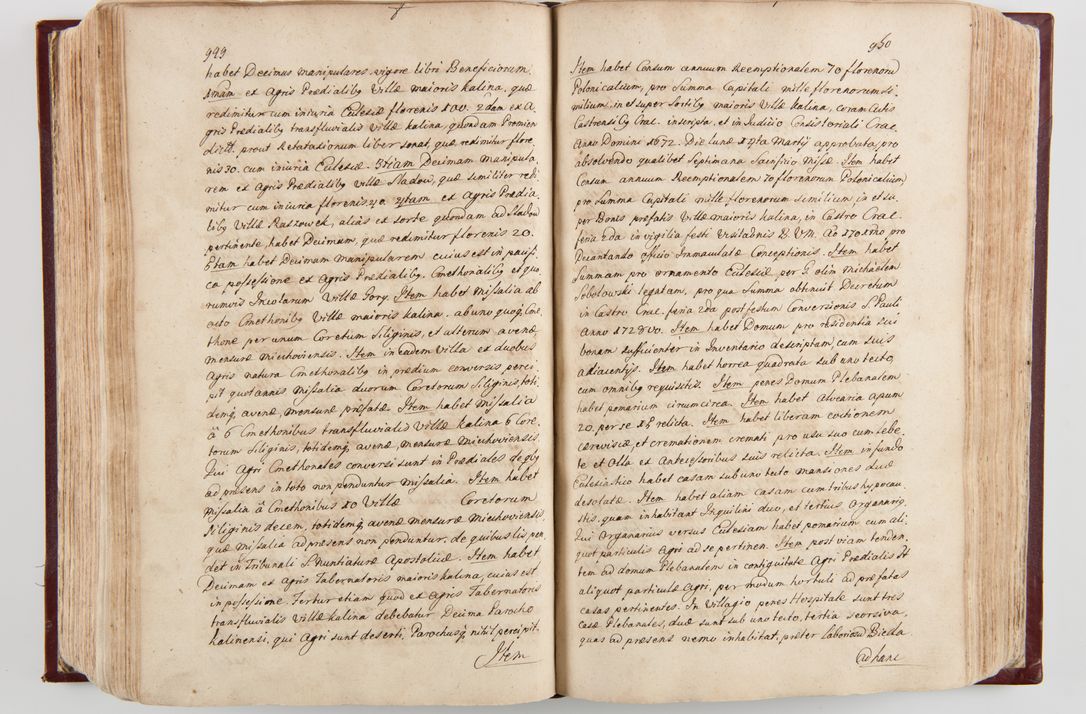 949
habet Decimas manipulares vigore libri Beneficiorum.
1mam ex Agris Prædialibg Villæ maioris Kalina, quæ
redimitur cum iniuria Eclesiæ florenis 100. 2dam ex A-
gris Prædialibg transfluvialis Villæ Kalina, quondam Promien
dictæ prout Retaxationum liber sonat, quæ redimitur flore-
nis 30. cum iniuria Eclesiæ. 3tiam Decimam Manipula-
rem ex Agris Prædialibg Villæ Sladow, quæ similiter redi-
mitur cum iniuria florenis 20. 4tam ex Agris Prædia-
libg Villæ Raszowek, alias ex sorte quondam ad Sladow
pertinente, habet Decimam, quæ redimitur florenis 20.
5tam habet Decimam manipularem cuius est in pacifi-
ca possessione ex Agris Prædialibg. Cmethonalibg et quo-
rumvis Incolarum Villæ Jory. Item habet missalia ab
octo Cmethonibg Villæ maioris Kalina, ab uno quoqꝫ Cme-
thone per unum Coretum Siliginis, et alterum avenæ,
mensuræ Miechoviensis. Item in eadem Villa ex duobus
Agris natura Cmethonalibg in prædium conversis perci-
pit quotannis missalia duorum Coretorum Siliginis, toti-
demqꝫ avenæ, mensuræ præfatæ. Item habet missalia
â 6 Cmethonibus transfluvialis Villæ Kalina 6 Core-
torum Siliginis, totidemqꝫ avenæ, mensuræ Miechoviensis.
Qui Agri Cmethonales conversi sunt in Prædiales de qbg
ad præsens in toto non penduntur Missalia. Item habet
missalia â Cmethonibus 10 Villæ Coretorum
Siliginis decem, totidemqꝫ avenæ mensuræ Miechoviensis,
quæ missalia ad præsens non penduntur, de quibus lis pen-
det in Tribunali S. Nuntiaturæ Apostolicæ. Item habet
Decimam ex Agris Tabernatoris maioris Kalina, cuius est
in possessione. Fertur etiam quod ex Agris Tabernatoris
transfluvialis Villæ Kalina debebatur Decima Parocho
Kalinensi, qui Agri sunt deserti, Parochusqꝫ nihil percipit.
Item
950
Item habet Censum annuum Reemptionalem 70 florenorũ
Polonicalium, pro Summa Capitali mille florenorum si-
milium, in et super Sortibg maioris Villæ Kalina, coram Actis
Castrensibg Crac. inscripta, et in Iudicio Consistoriali Crac.
Anno Domini 1672. Die lunæ 14ta Martij approbata, pro
absolvendo qualibet Septimana Sacrificio Missæ. Item habet
Censum annuum Reemptionalem 70 florenorum Polonicaliũ,
pro Summa Capitali mille florenorum Similium, in et su-
per Bonis præfatis Villæ maioris Kalina, in Castro Crac.
feria 2da in vigilia festi Visitãonis B. V. M. Ao 1701mo pro
Decantando Officio Immaculatæ Conceptionis. Item habet
Summam pro ornamento Eclesiæ per G. olim Michaelem
Sobolowski legatam, pro qua Summa obtinuit Decretum
in Castro Crac. feria 2da post festum Conversionis S. Pauli
Anno 1728vo. Item habet Domum pro residentia sui
bonam sufficienter in Inventario descriptam, cum suis
adiacentys. Item habet horrea quadrata sub uno tecto,
cum omnibg requisitis. Item penes Domum Plebanalem
habet pomarium circumcirca. Item habet alvearia apum
20, per se relicta. Item habet liberam coctionem
cærevisiæ, et cremationem cremati pro usu suo cum lebe-
te et Olla ex Antecessoribus suis relicta. Item in fundo
Eclesiastico habet casam sub uno tecto mansiones duæ
desolatæ. Item habet aliam Casam cum tribus hypocau-
stis, quam inhabitant Inquilini duo, et tertius Organariq
Qui Organarius versus Eclesiam habet pomarium cum ali-
quot particulis Agri ad se pertinen. Item post viam tenden-
tem ad domum Plebanalem in contiguitate Agri Prædialis st
aliquot particulæ Agri, per modum hortuli ad præfatas
casas pertinentes. In Villagio penes Hospitale sunt tres
Casæ Plebanales, duæ sunt sub uno tecto, tertia seorsiva,
quas ad præsens nemo inhabitat, præter laboriosũ Biela
Ad hanc